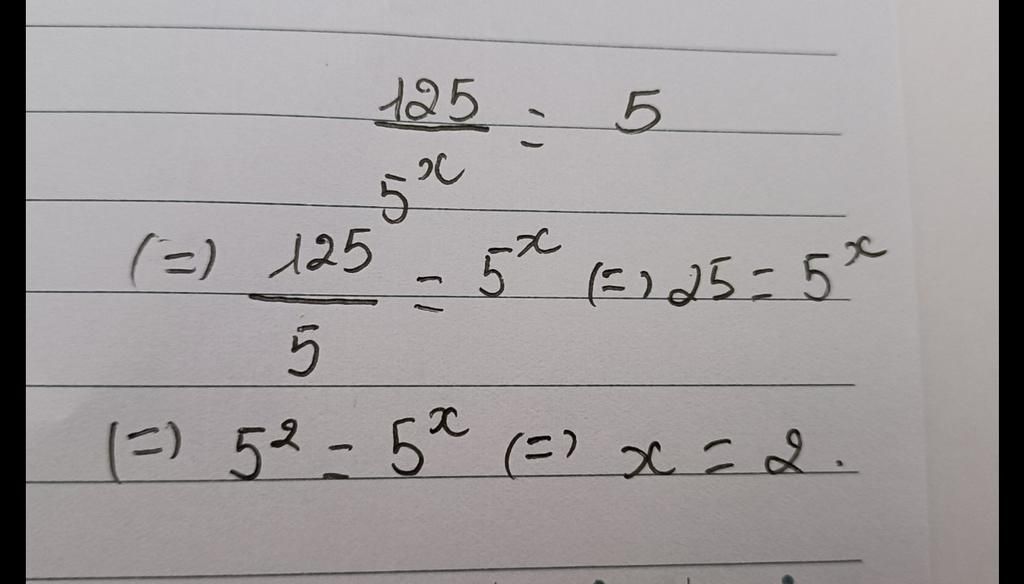 125/5^x = 5
(=) 125/5 = 5^x (=) 25 = 5^x
(=) 5^2 = 5^x (=) x = 2.